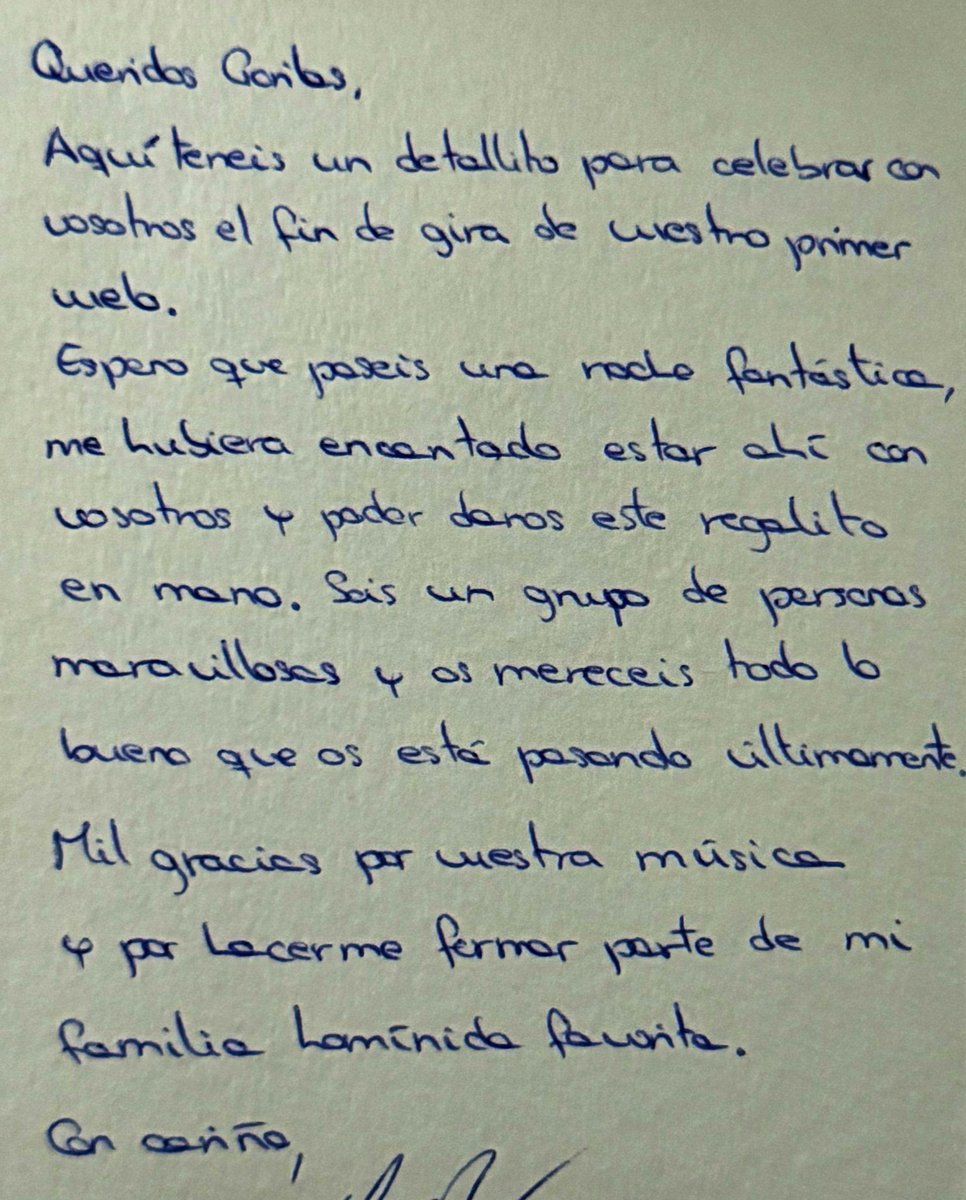 Queridos Gorilas,
Aquí teneis un detallito para celebrar con
vosotros el fin de gira de vuestro primer
web.
Espero que paseis una noche fantástica,
me hubiera encantado estar ahí con
vosotros y poder daros este regalito
en mano. Sois un grupo de personas
maravillosas y os mereceis todo lo
bueno que os está pasando últimamente.
Mil gracias por vuestra música
y por hacerme formar parte de mi
familia homínida favorita.
Con cariño,